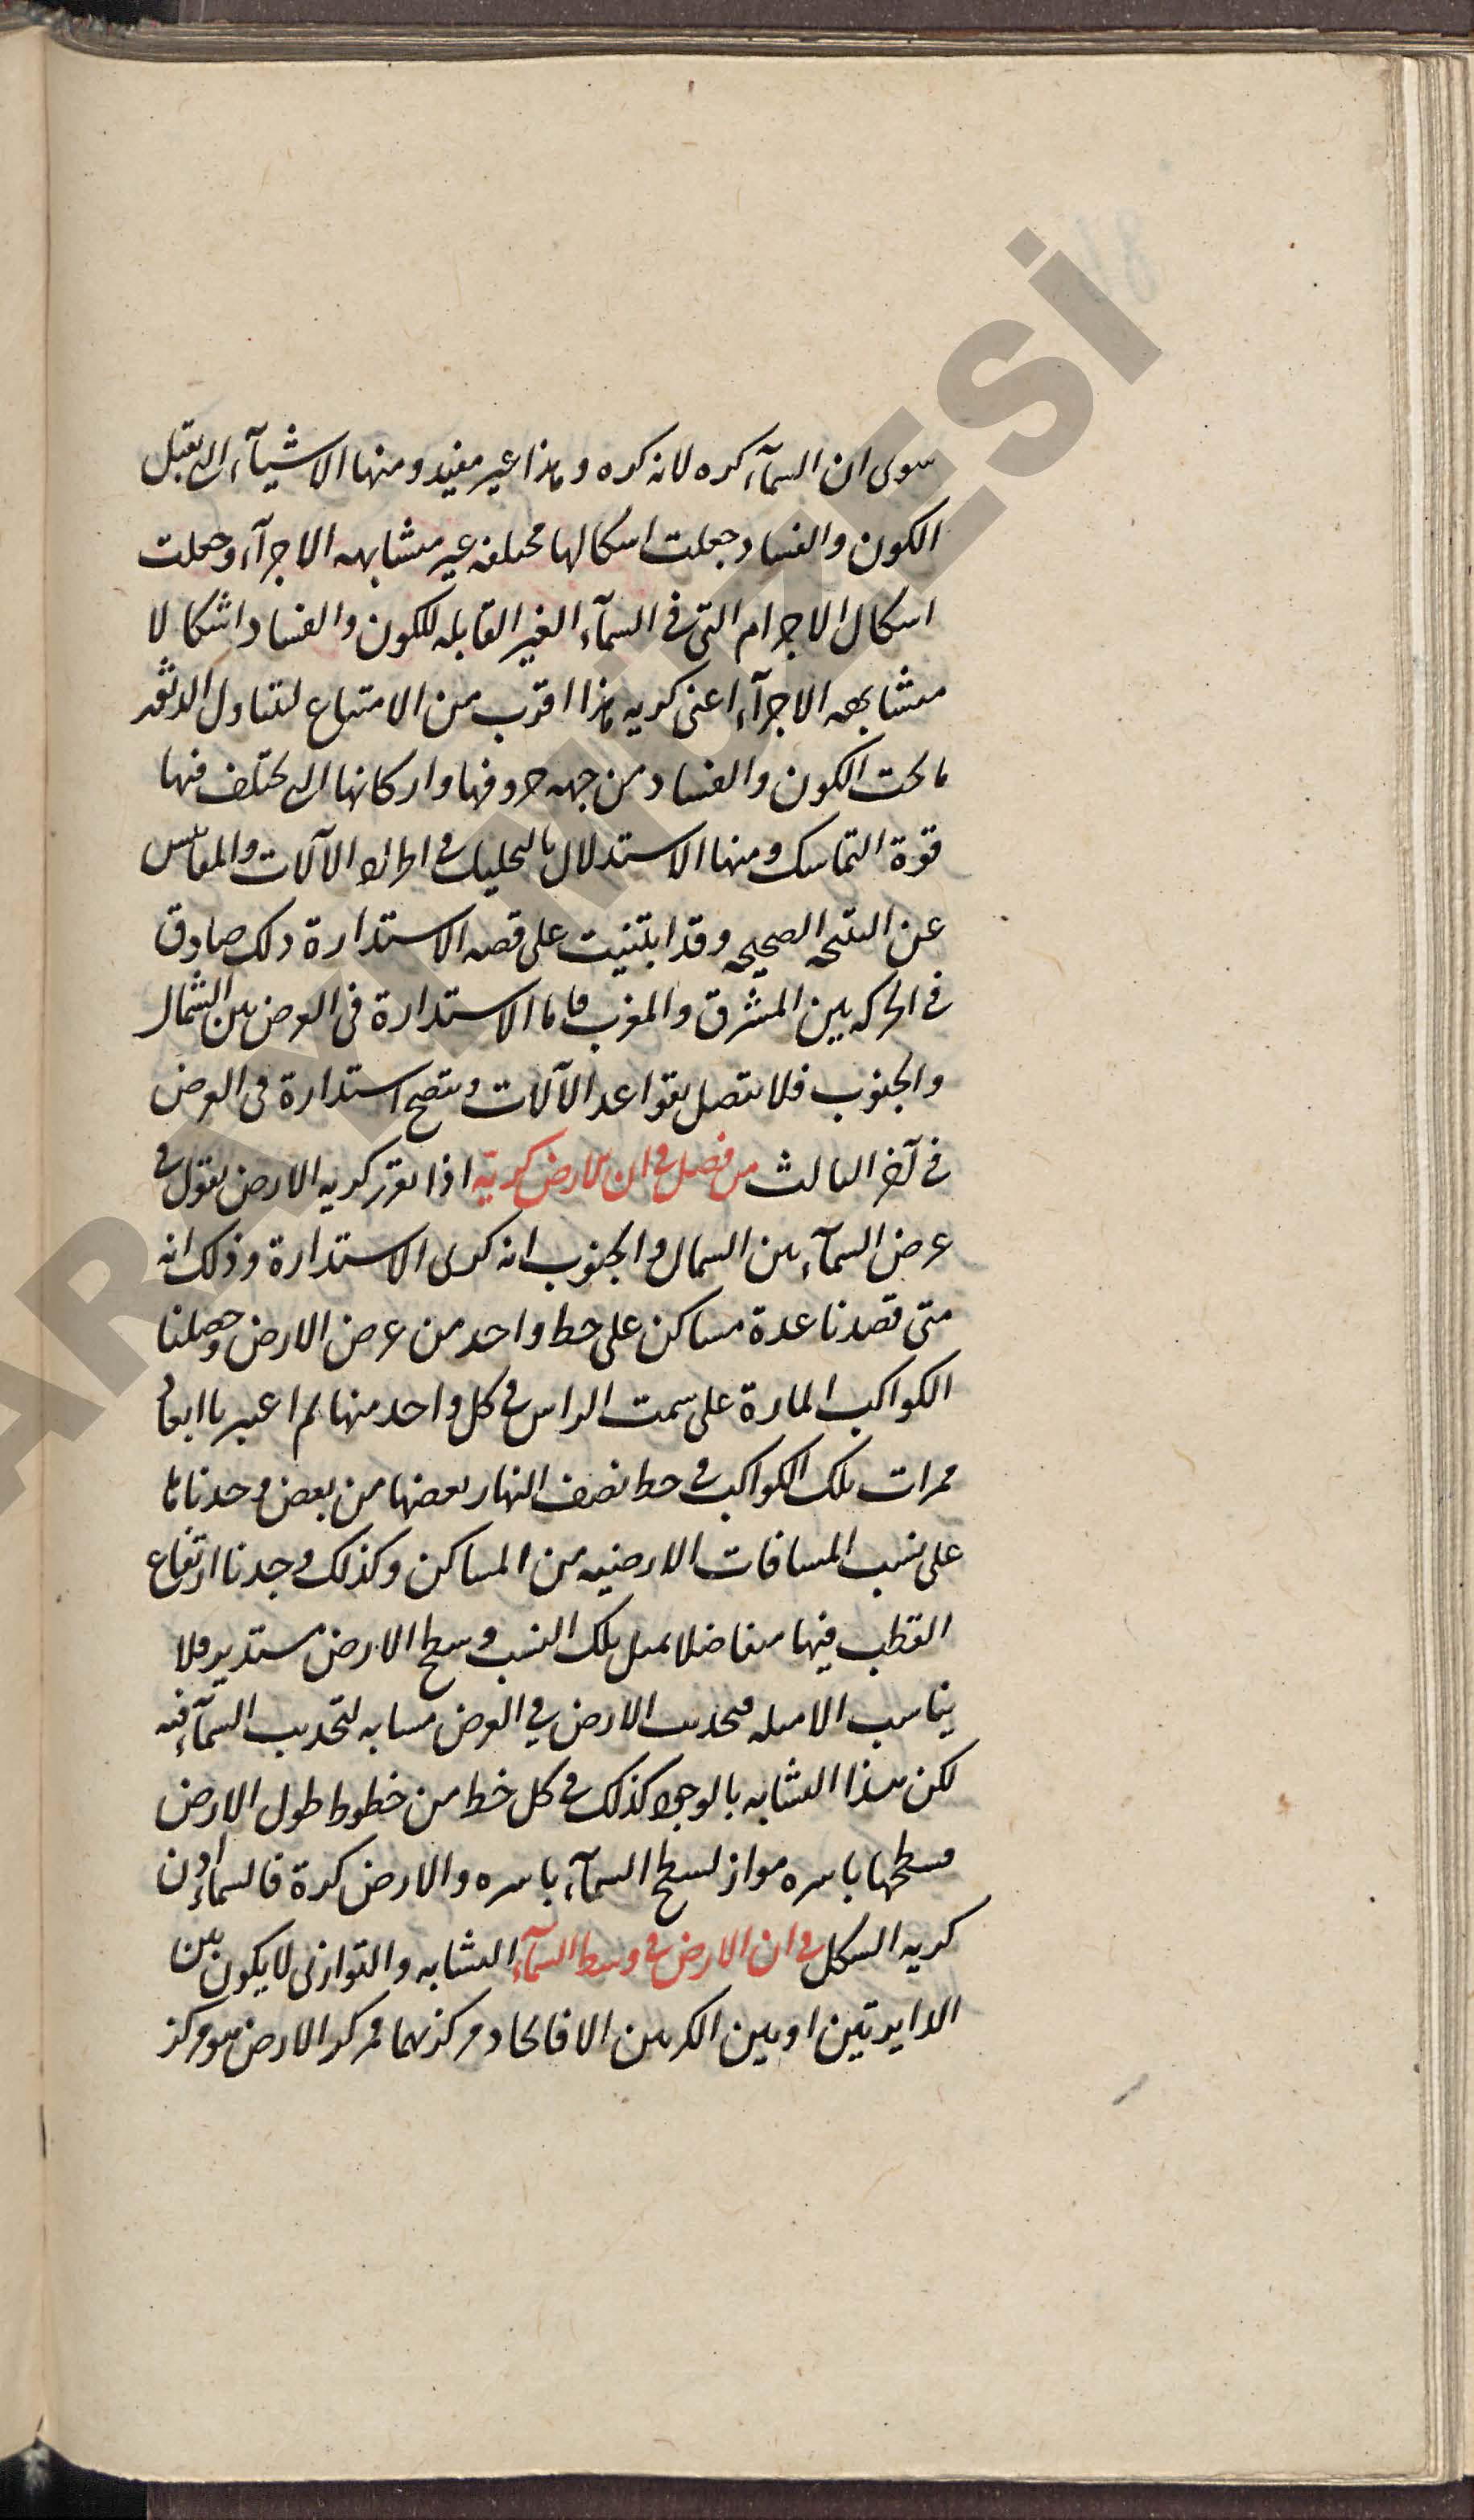 سوى ان السمآء كره لانه كره وهذا غير مفيد ومنها الاشيآء التى يقبل
الكون والفساد جعلت اشكالها مختلفه غير متشابهه الاجزآء وجعلت
اشكال الاجرام التى فى السمآء الغير القابله للكون والفساد اشكالا
متشابهه الاجزآء اعنى كريه هذا اقرب من الامتناع لتناول
ما تحت الكون والفساد من جهه حروفها واركانها التى يختلف فيها
قوة التماسك ومنها الاستدلال فى الآلات والمقاييس
عن الصحيحه وقد ابتنيت على قصه الاستدارة ذلك صادق
فى الحركه بين المشرق والمغرب فاما الاستدارة فى العرض بين الشمال
والجنوب فلا يتصل بقواعد الآلات ويتضح استدارة فى العرض
فى آخر الثالث من فصل فى ان الارض كرية اذا تقرر كريه الارض نقول فى
عرض السمآء بين الشمال والجنوب انه كرى الاستدارة وذلك انه
متى قصدنا عدة مساكن على خط واحد من عرض الارض وحصلنا
الكواكب المارة على سمت الراس فى كل واحد منها ثم اعتبرنا ابعاد
ممرات تلك الكواكب فى خط نصف النهار بعضها من بعض وجدناها
على نسب المسافات الارضيه من المساكن وكذلك وجدنا ارتفاع
القطب فيها متفاضلا بمثل تلك النسب وسطح الارض مستدير فلا
يناسب الا مثله فتحديب الارض فى العرض مشابه لتحديب السمآء فيه
لكن هذا التشابه بالوجود كذلك فى كل خط من خطوط طول الارض
فسطحها باسره مواز لسطح السمآء باسره والارض كرة فالسماء اذن
كريه الشكل فى ان الارض فى وسط السمآء التشابه والتوازى لا يكون بين
الدايرتين او بين الكرتين الا فاتحاد مركزيهما فمركز الارض هو مركز